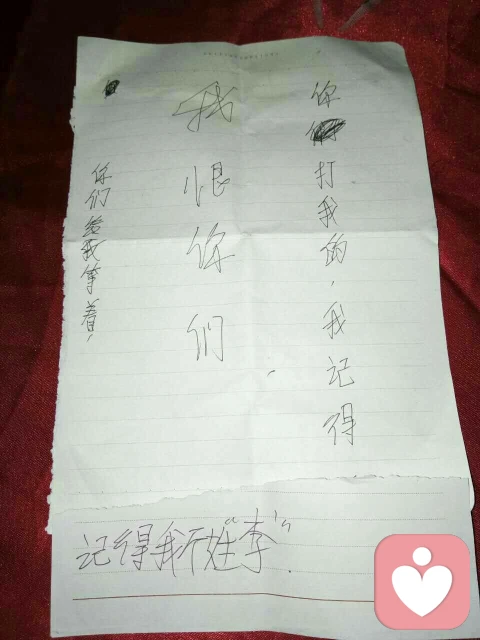 你打我的，我记得
我恨你们
你们给我等着，
记得我不姓“李”.